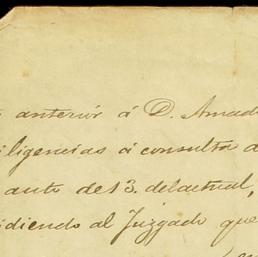 anterior á D. Amad
iligencias á consulta d
auto de 13. del actual,
idiendo al Juzgado que